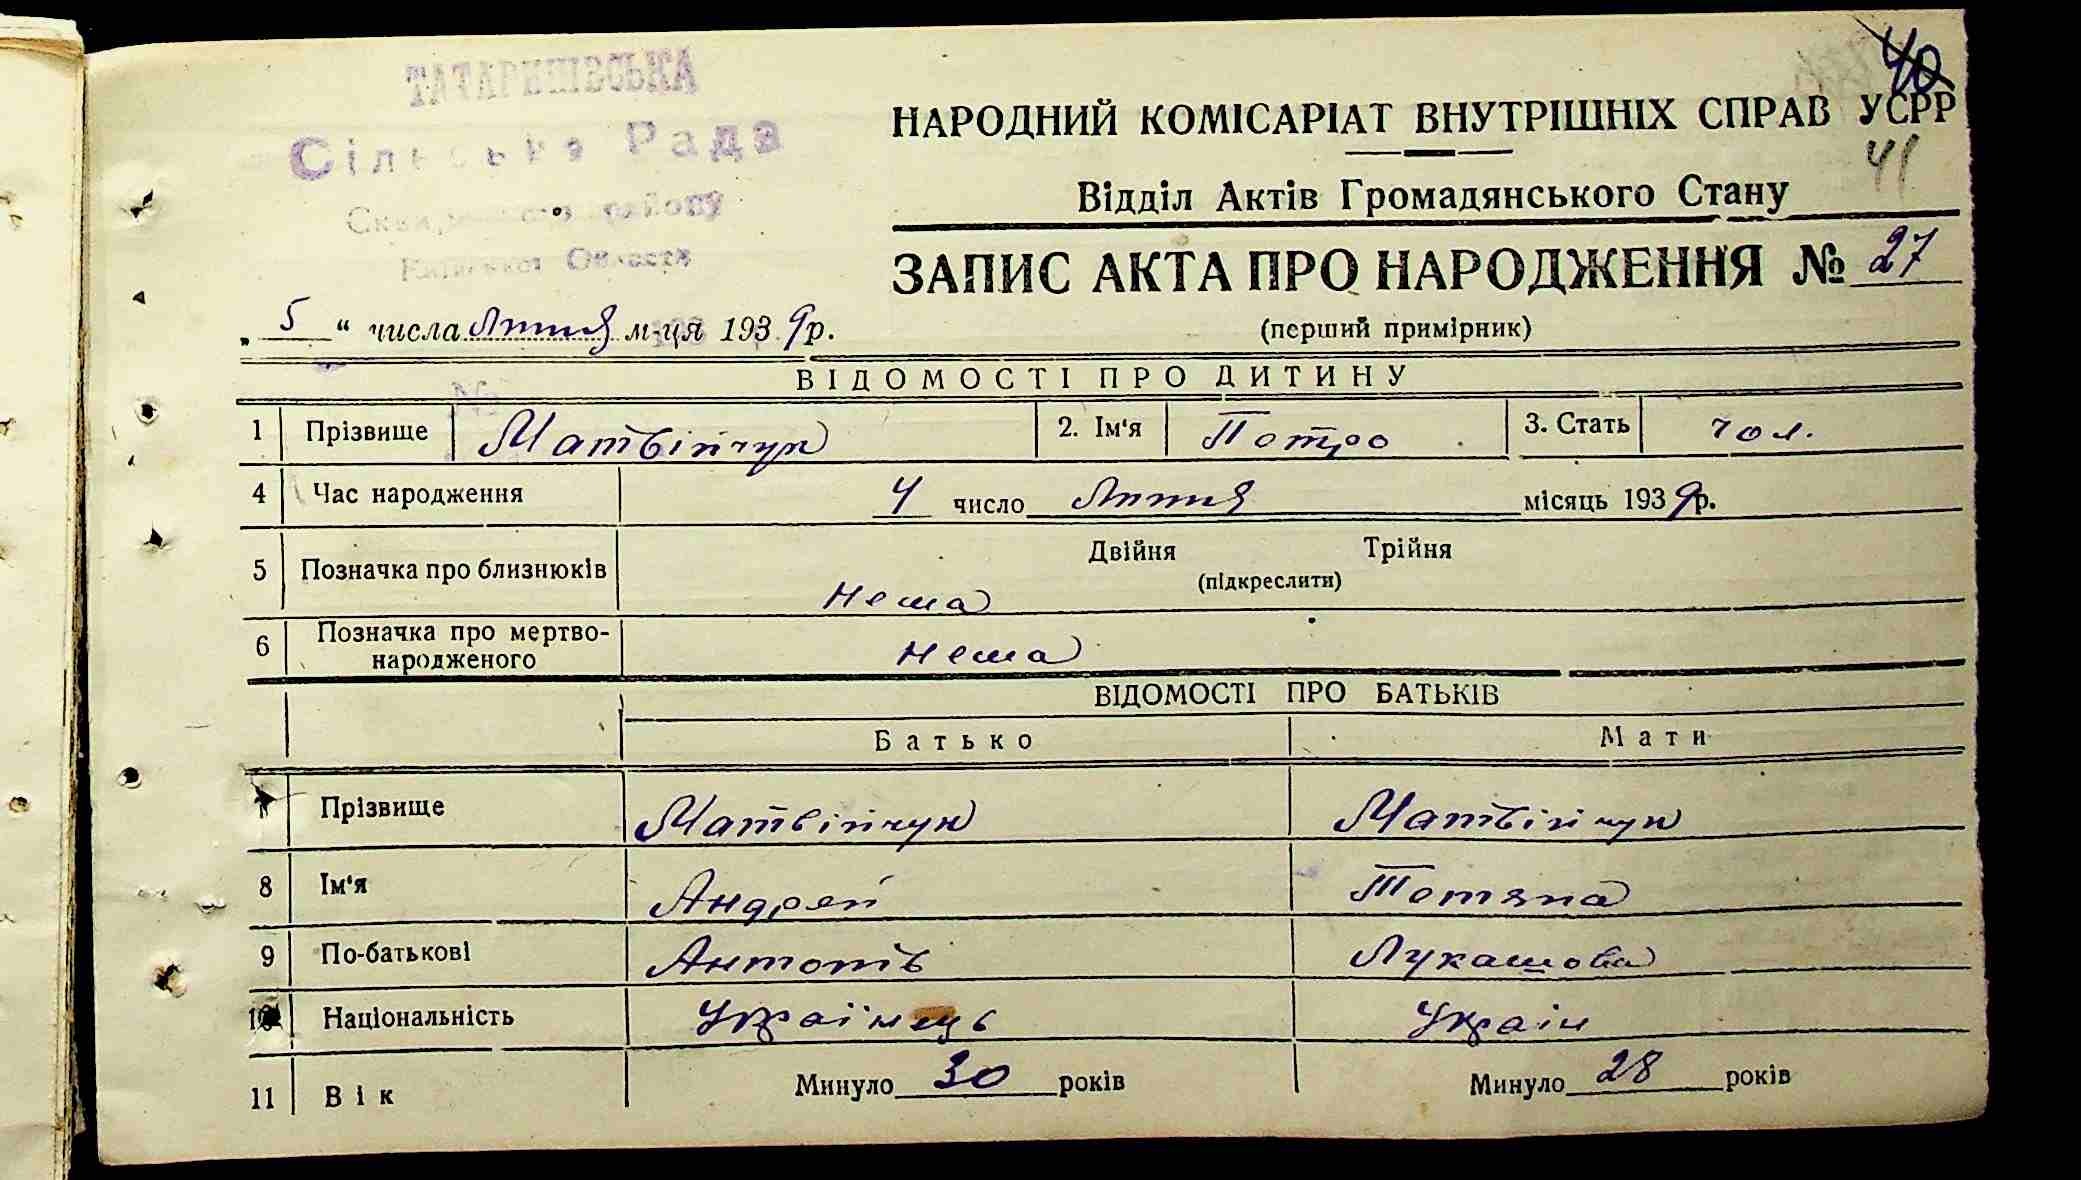 ТАТАРИНІВСЬКА
Сільська Рада
Сквирського району
Київської Области
40
НАРОДНИЙ КОМІСАРІАТ ВНУТРІШНІХ СПРАВ УСРР
41
Відділ Актів Громадянського Стану
ЗАПИС АКТА ПРО НАРОДЖЕННЯ № 27
„ 5 “ числа Липня м-ця 1939 р.
(перший примірник)
№
ВІДОМОСТІ ПРО ДИТИНУ
1 Прізвище Матвійчук 2. Ім'я Потро 3. Стать чол.
4 Час народження 4 число Липня місяць 1939 р.
5 Позначка про близнюків Двійня Трійня
(підкреслити)
Нема
6 Позначка про мертво-
народженого Нема
ВІДОМОСТІ ПРО БАТЬКІВ
Батько Мати
7 Прізвище Матвійчук Матвійчук
8 Ім'я Андрей Тотяна
9 По-батькові Антонів Лукашова
10 Національність Українець Україн
11 Вік Минуло 30 років Минуло 28 років